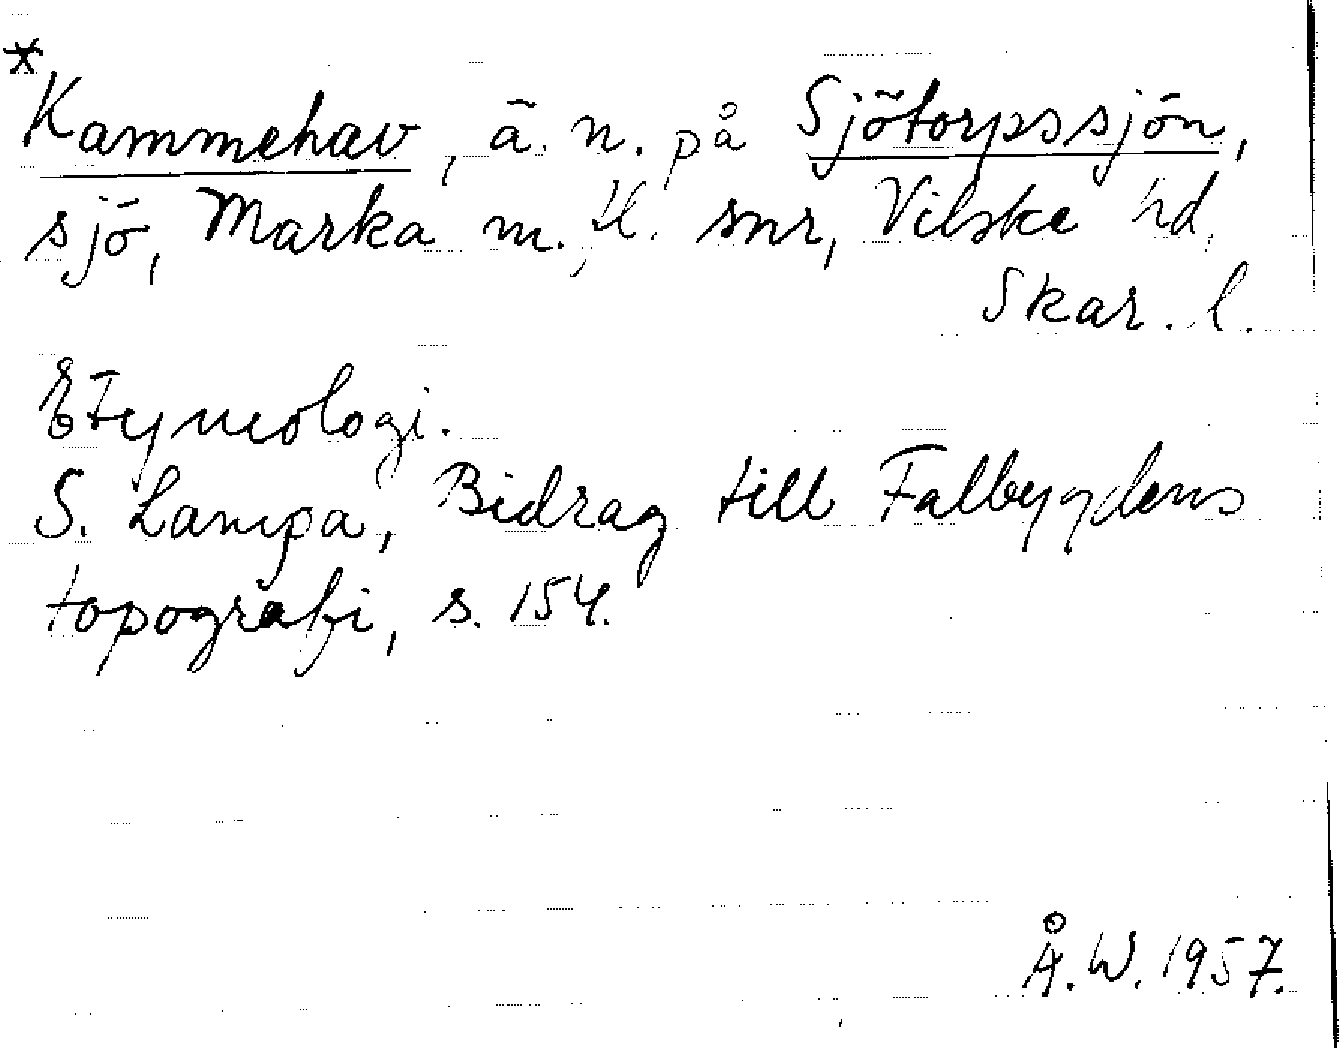 *
Kammehav, ä. n. på Sjötorpssjön,
sjö, Marka m. fl. snr, Vilske hd,
Skar. l.
Etymologi.
S. Lampa, Bidrag till Falbygdens
topografi, s. 154.
Å. W. 1957.